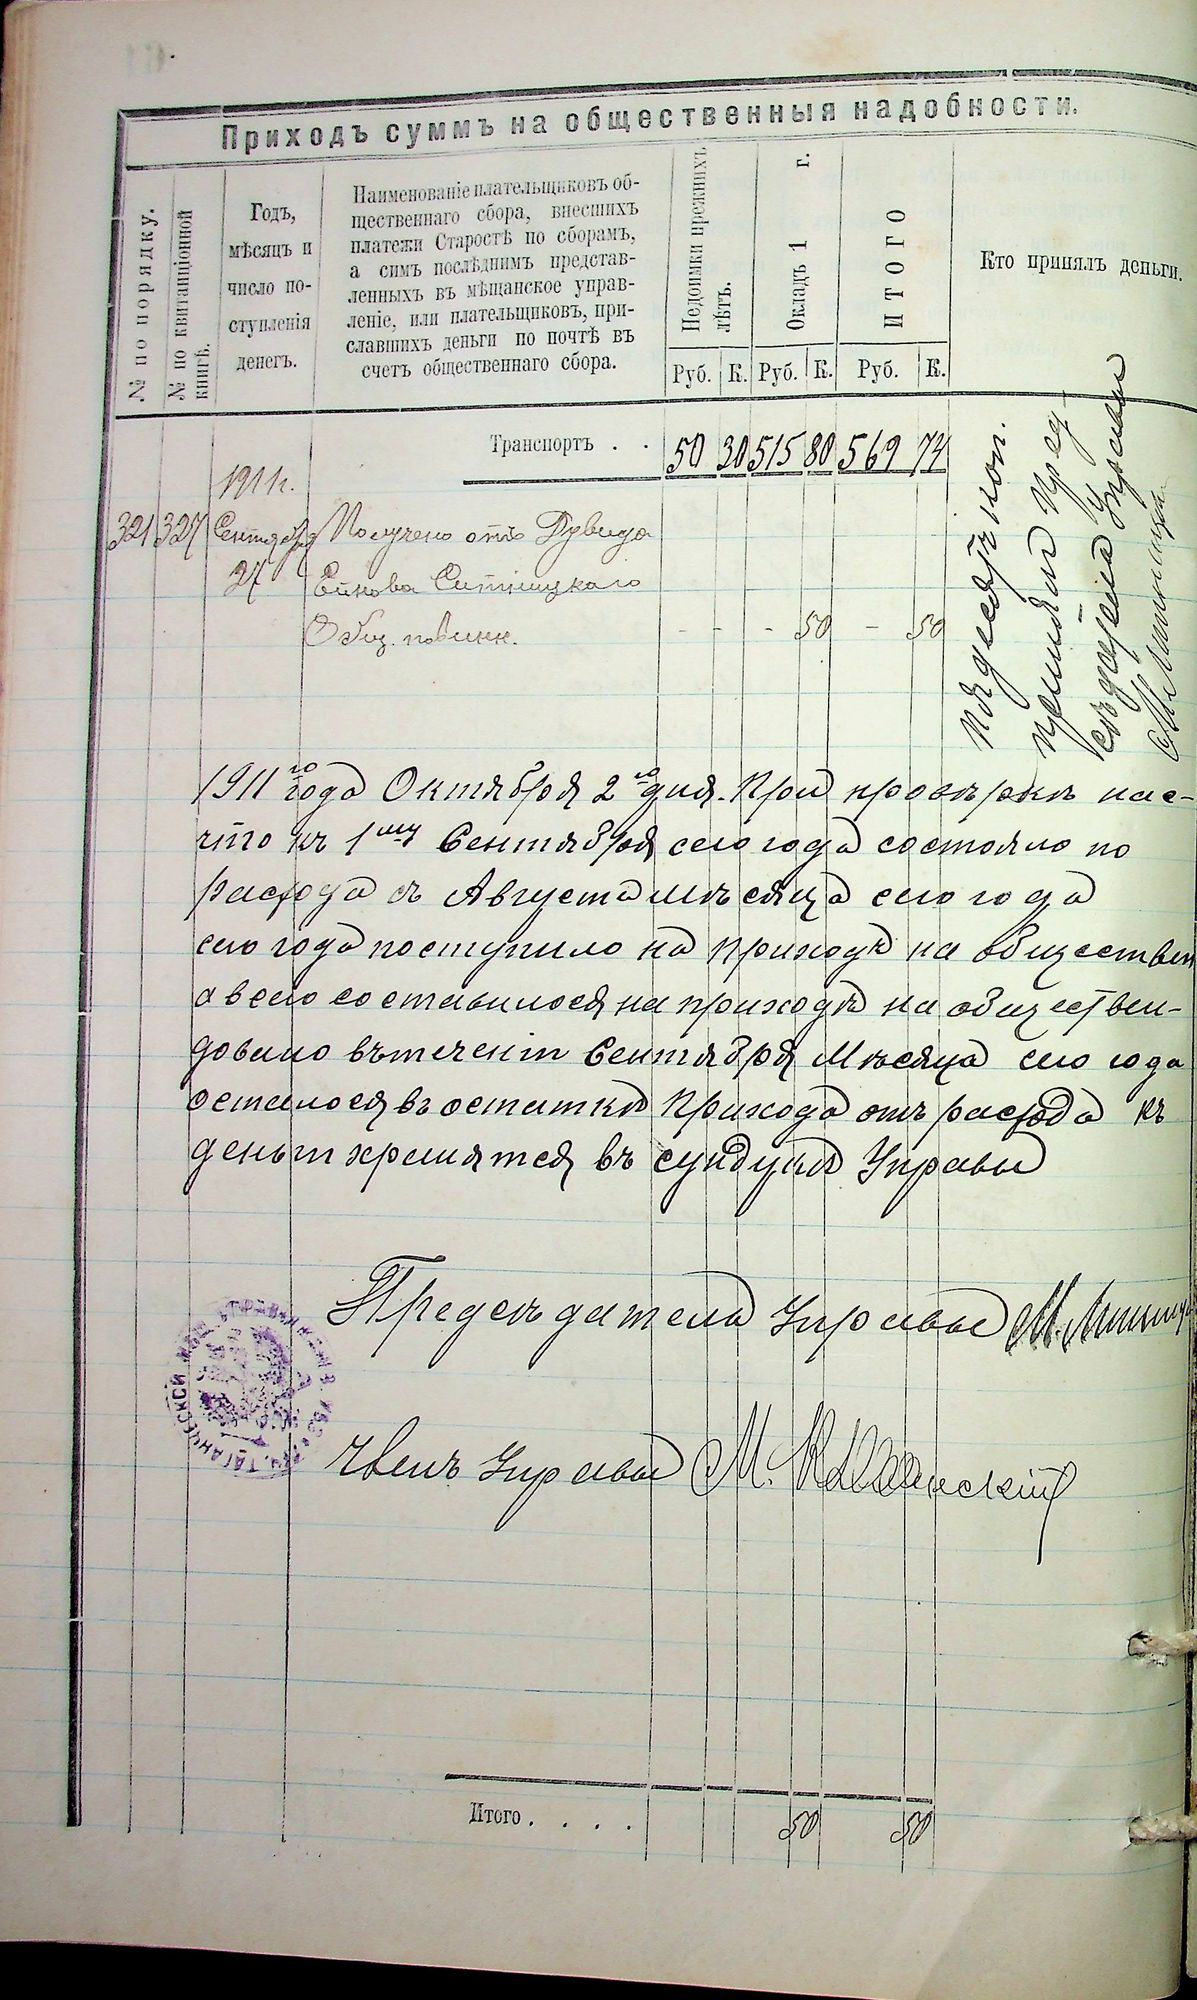 Приходъ суммъ на общественныя надобности.
№ по порядку.
№ по квитанціонной книгѣ.
Годъ,
мѣсяцъ и
число по-
ступленія
денегъ.
Наименованіе плательщиковъ об-
щественнаго сбора, внесшихъ
платежи Старостѣ по сборамъ,
а симъ послѣднимъ представ-
ленныхъ въ мѣщанское управ-
леніе, или плательщиковъ, при-
славшихъ деньги по почтѣ въ
счетъ общественнаго сбора.
Недоимки прежнихъ лѣтъ.
Окладъ 1 г.
ИТОГО
Кто принялъ деньги.
Руб. К. Руб. К. Руб. К.
Транспортъ . . 50 30 515 80 569 74
1911 г.
321 327 Сентября Получено отъ Дувида
27 Ситницкаго
Общ. повинн. - - - 50 - 50
пядесятъ коп.
принялъ Пред-
сѣдатель Управы
1911го года Октября 2го дня. При провѣркѣ нас-
что къ 1му Сентября сего года состояло по
расхода съ Августа мѣсяца сего года
сего года поступило на приходъ на обществен
а всего составилося на приходѣ на обществен-
довано втеченіи Сентября Мѣсяца сего года
осталося въ остаткѣ Прихода отъ расхода къ
деньги хранятся въ сундукѣ Управы
Предсѣдатель Управы М.
Членъ Управы М.
Итого . . . . 50 50